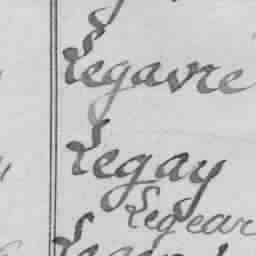 Legavre
Legay
Legear